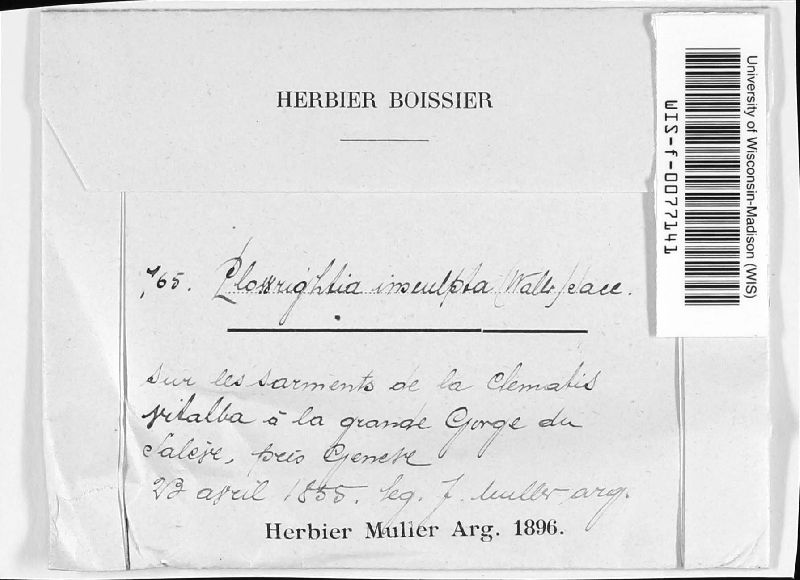 HERBIER BOISSIER
University of Wisconsin-Madison (WIS)
WIS-f-0077141
765. Plowrightia insculpta (Wallr) Sacc.
sur les sarments de la Clematis
vitalba à la grande Gorge du
Salève, près Genève
23 avril 1855. leg. J. Muller arg.
Herbier Muller Arg. 1896.